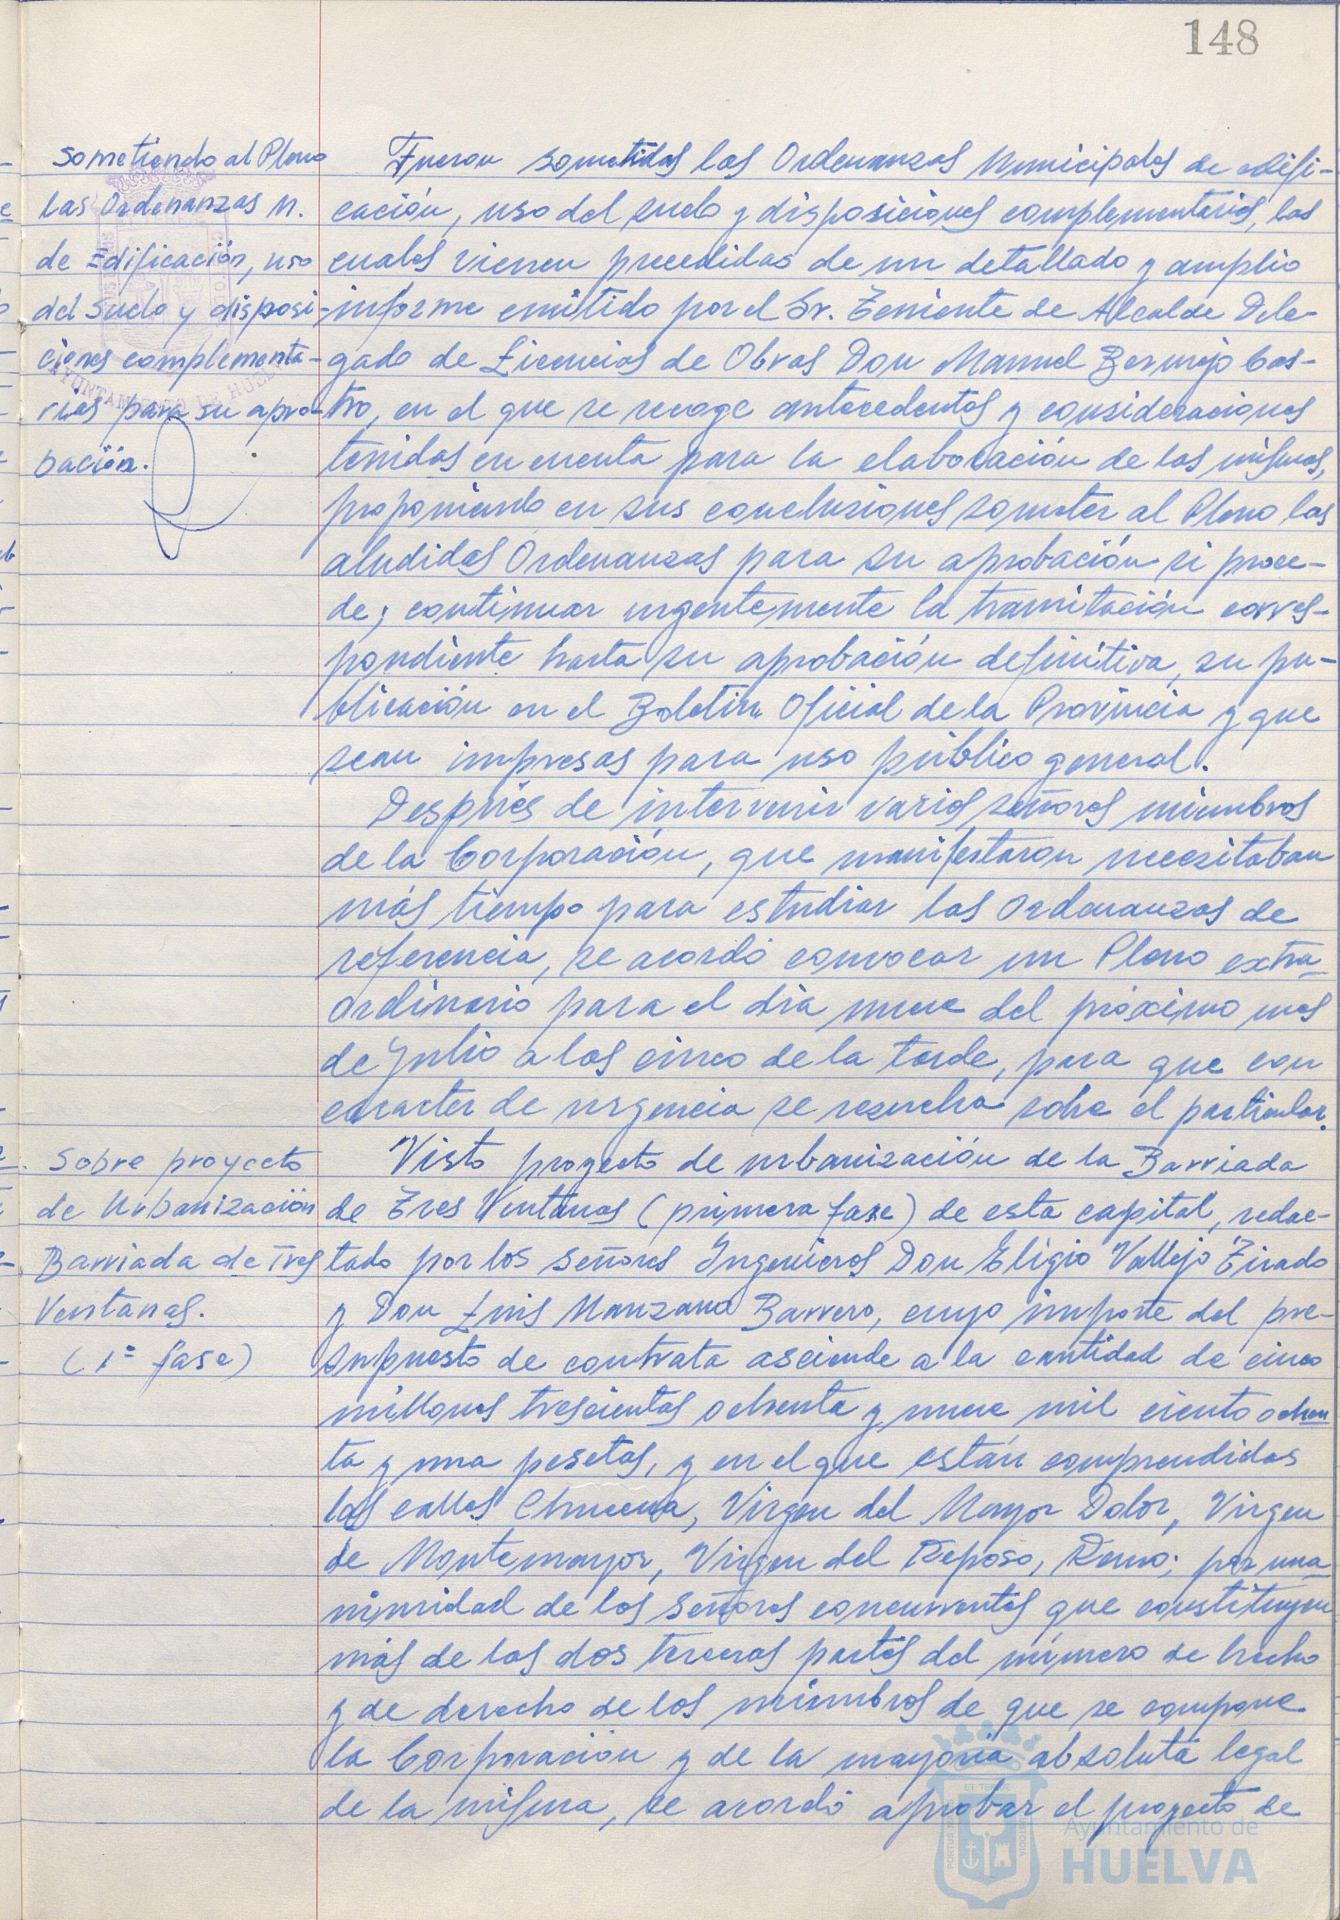 148
Sometiendo al Pleno
las Ordenanzas M.
de Edificación, uso
del Suelo y disposi-
ciones complementa-
rias para su apro-
bación.
Fueron sometidas las Ordenanzas Municipales de edifi-
cación, uso del suelo y disposiciones complementarias, las
cuales vienen precedidas de un detallado y amplio
informe emitido por el Sr. Teniente de Alcalde Dele-
gado de Licencias de Obras Don Manuel Bermejo Cas-
tro, en el que se recoge antecedentes y consideraciones
tenidas en cuenta para la elaboración de las mismas,
proponiendo en sus conclusiones someter al Pleno las
aludidas Ordenanzas para su aprobación si proce-
de; continuar urgentemente la tramitación corres-
pondiente hasta su aprobación definitiva, su pu-
blicación en el Boletín Oficial de la Provincia y que
sean impresas para uso público general.
Después de intervenir varios señores miembros
de la Corporación, que manifestaron necesitaban
más tiempo para estudiar las Ordenanzas de
referencia, se acordó convocar un Pleno extra-
ordinario para el día nueve del próximo mes
de Julio a las cinco de la tarde, para que con
caracter de urgencia se resuelva sobre el particular.
Sobre proyecto
de Urbanización
Barriada de Tres
Ventanas.
(1ª fase)
Visto proyecto de urbanización de la Barriada
de Tres Ventanas (primera fase) de esta capital, redac-
tado por los señores Ingenieros Don Eligio Vallejo Tirado
y Don Luis Manzano Barrero, cuyo importe del pre-
supuesto de contrata asciende a la cantidad de cinco
millones trescientas ochenta y nueve mil ciento ochen
ta y una pesetas, y en el que están comprendidas
las calles Chucena, Virgen del Mayor Dolor, Virgen
de Montemayor, Virgen del Reposo, por una-
nimidad de los señores concurrentes que constituyen
más de las dos terceras partes del número de hecho
y de derecho de los miembros de que se compone
la Corporación y de la mayoría absoluta legal
de la misma, se acordó aprobar el proyecto de
AYUNTAMIENTO DE HUELVA
Ayuntamiento de
HUELVA